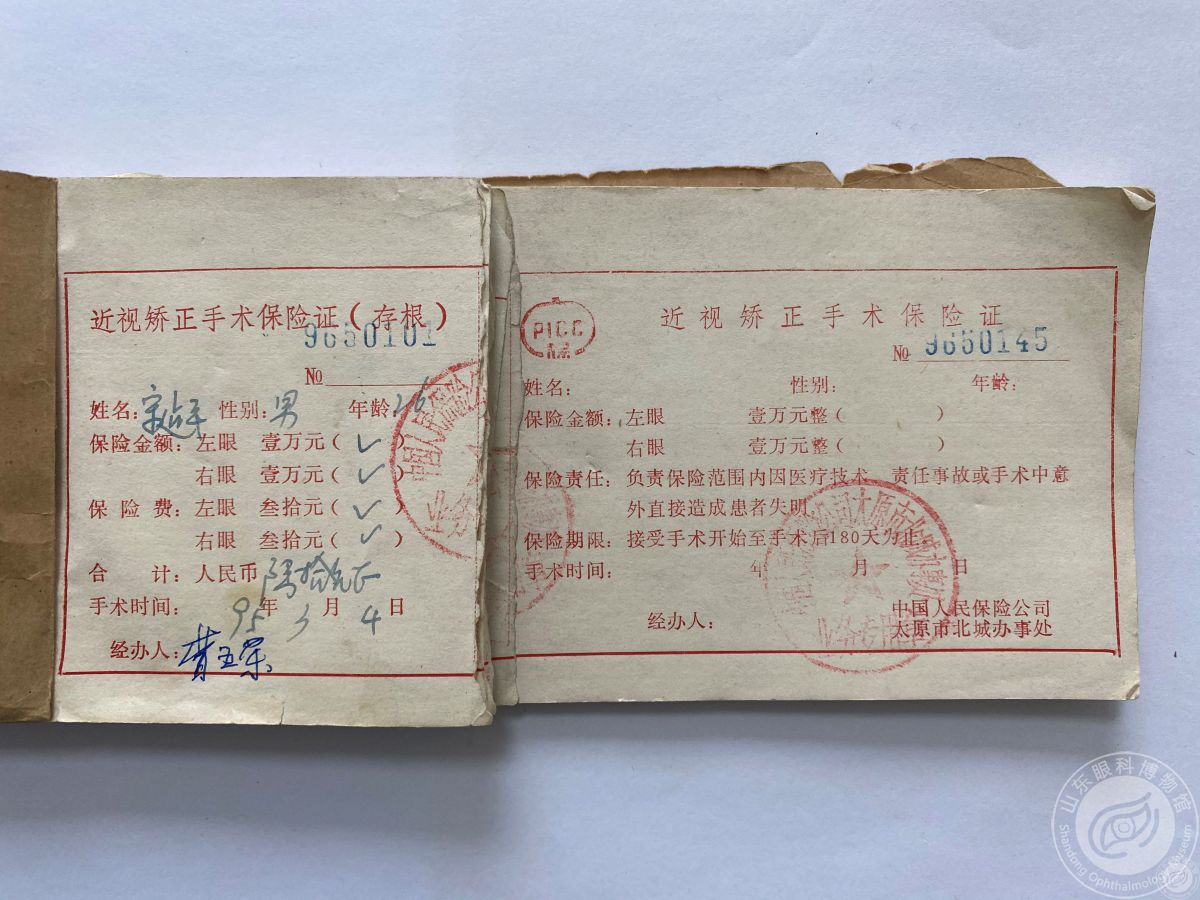 近视矫正手术保险证（存根）
9650101
№
姓名： 性别：男 年龄：26
保险金额：左眼 壹万元（✓）
右眼 壹万元（✓）
保险费：左眼 叁拾元（✓）
右眼 叁拾元（✓）
合计：人民币 陆拾元正
手术时间：95年3月4日
经办人：
PICC
近视矫正手术保险证
№ 9650145
姓名： 性别： 年龄：
保险金额：左眼 壹万元整（ ）
右眼 壹万元整（ ）
保险责任：负责保险范围内因医疗技术 责任事故或手术中意
外直接造成患者失明。
保险期限：接受手术开始至手术后180天为止。
手术时间： 年 月 日
经办人：
中国人民保险公司
太原市北城办事处
业务专用章
山东眼科博物馆
Shandong Ophthalmology Museum